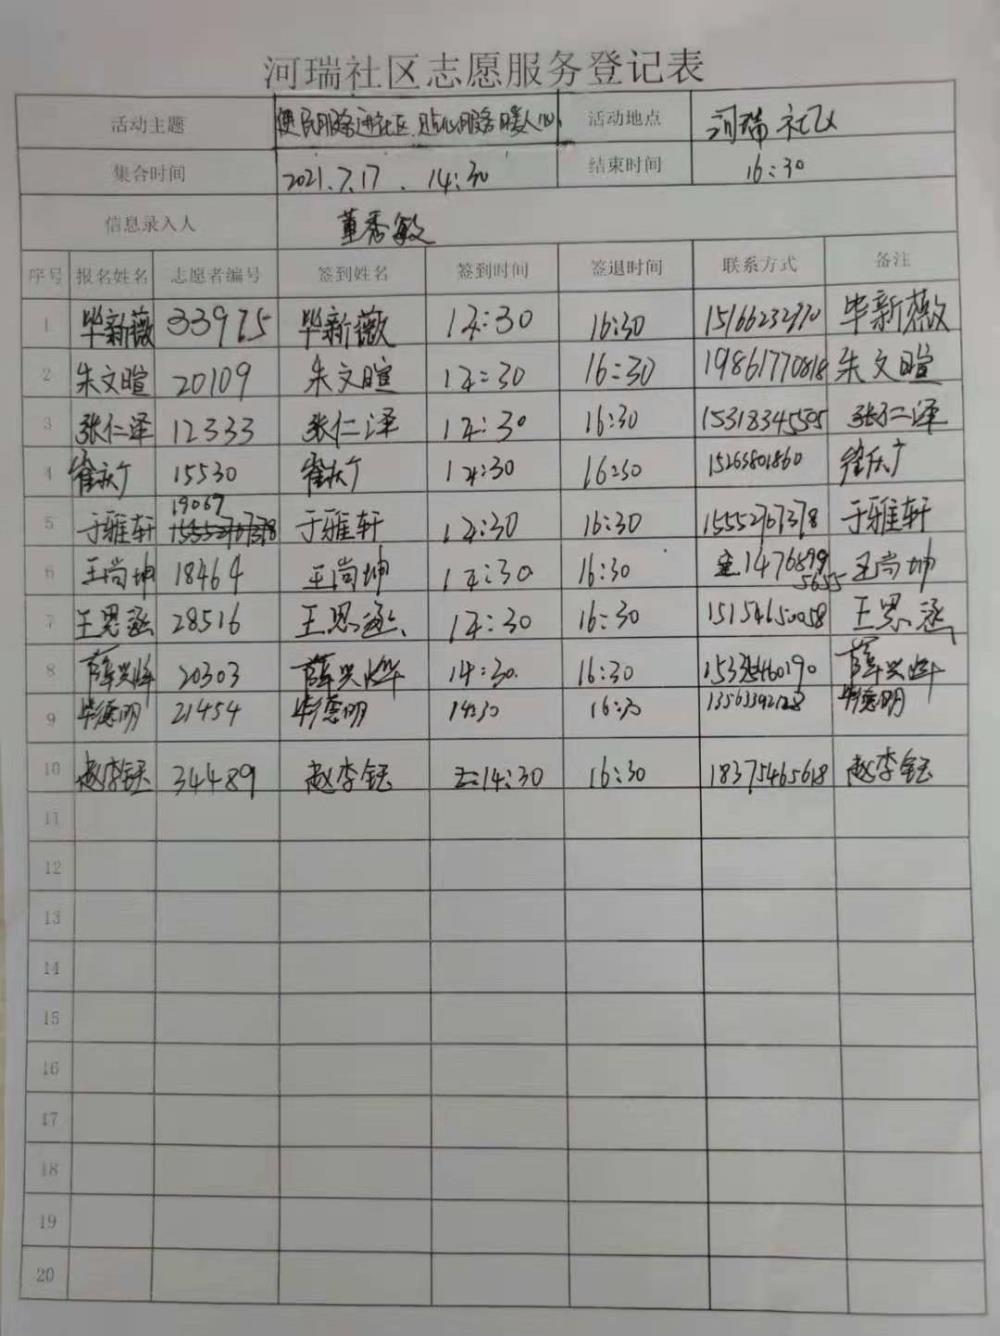 河瑞社区志愿服务登记表
活动主题 便民服务进社区，贴心服务暖人心 活动地点 河瑞社区
集合时间 2021.7.17. 14:30 结束时间 16:30
信息录入人 董秀敏
序号 报名姓名 志愿者编号 签到姓名 签到时间 签退时间 联系方式 备注
1 毕新薇 33975 毕新薇 14:30 16:30 毕新薇
2 朱文暄 20109 朱文暄 14:30 16:30 19861770818 朱文暄
3 张仁泽 12333 张仁泽 14:30 16:30 15318345505 张仁泽
4 崔庆广 15530 崔庆广 14:30 16:30 15265801860 崔庆广
19067
5 于雅轩 于雅轩 14:30 16:30 15552767378 于雅轩
6 王尚坤 18464 王尚坤 14:30 16:30 王尚坤
7 王思涵 28516 王思涵 14:30 16:30 15154650058 王思涵
8 薛兴烨 20303 薛兴烨 14:30 16:30 薛兴烨
9 毕德明 21454 毕德明 14:30 16:30 毕德明
10 赵李钰 34489 赵李钰 14:30 16:30 18375465618 赵李钰
11
12
13
14
15
16
17
18
19
20